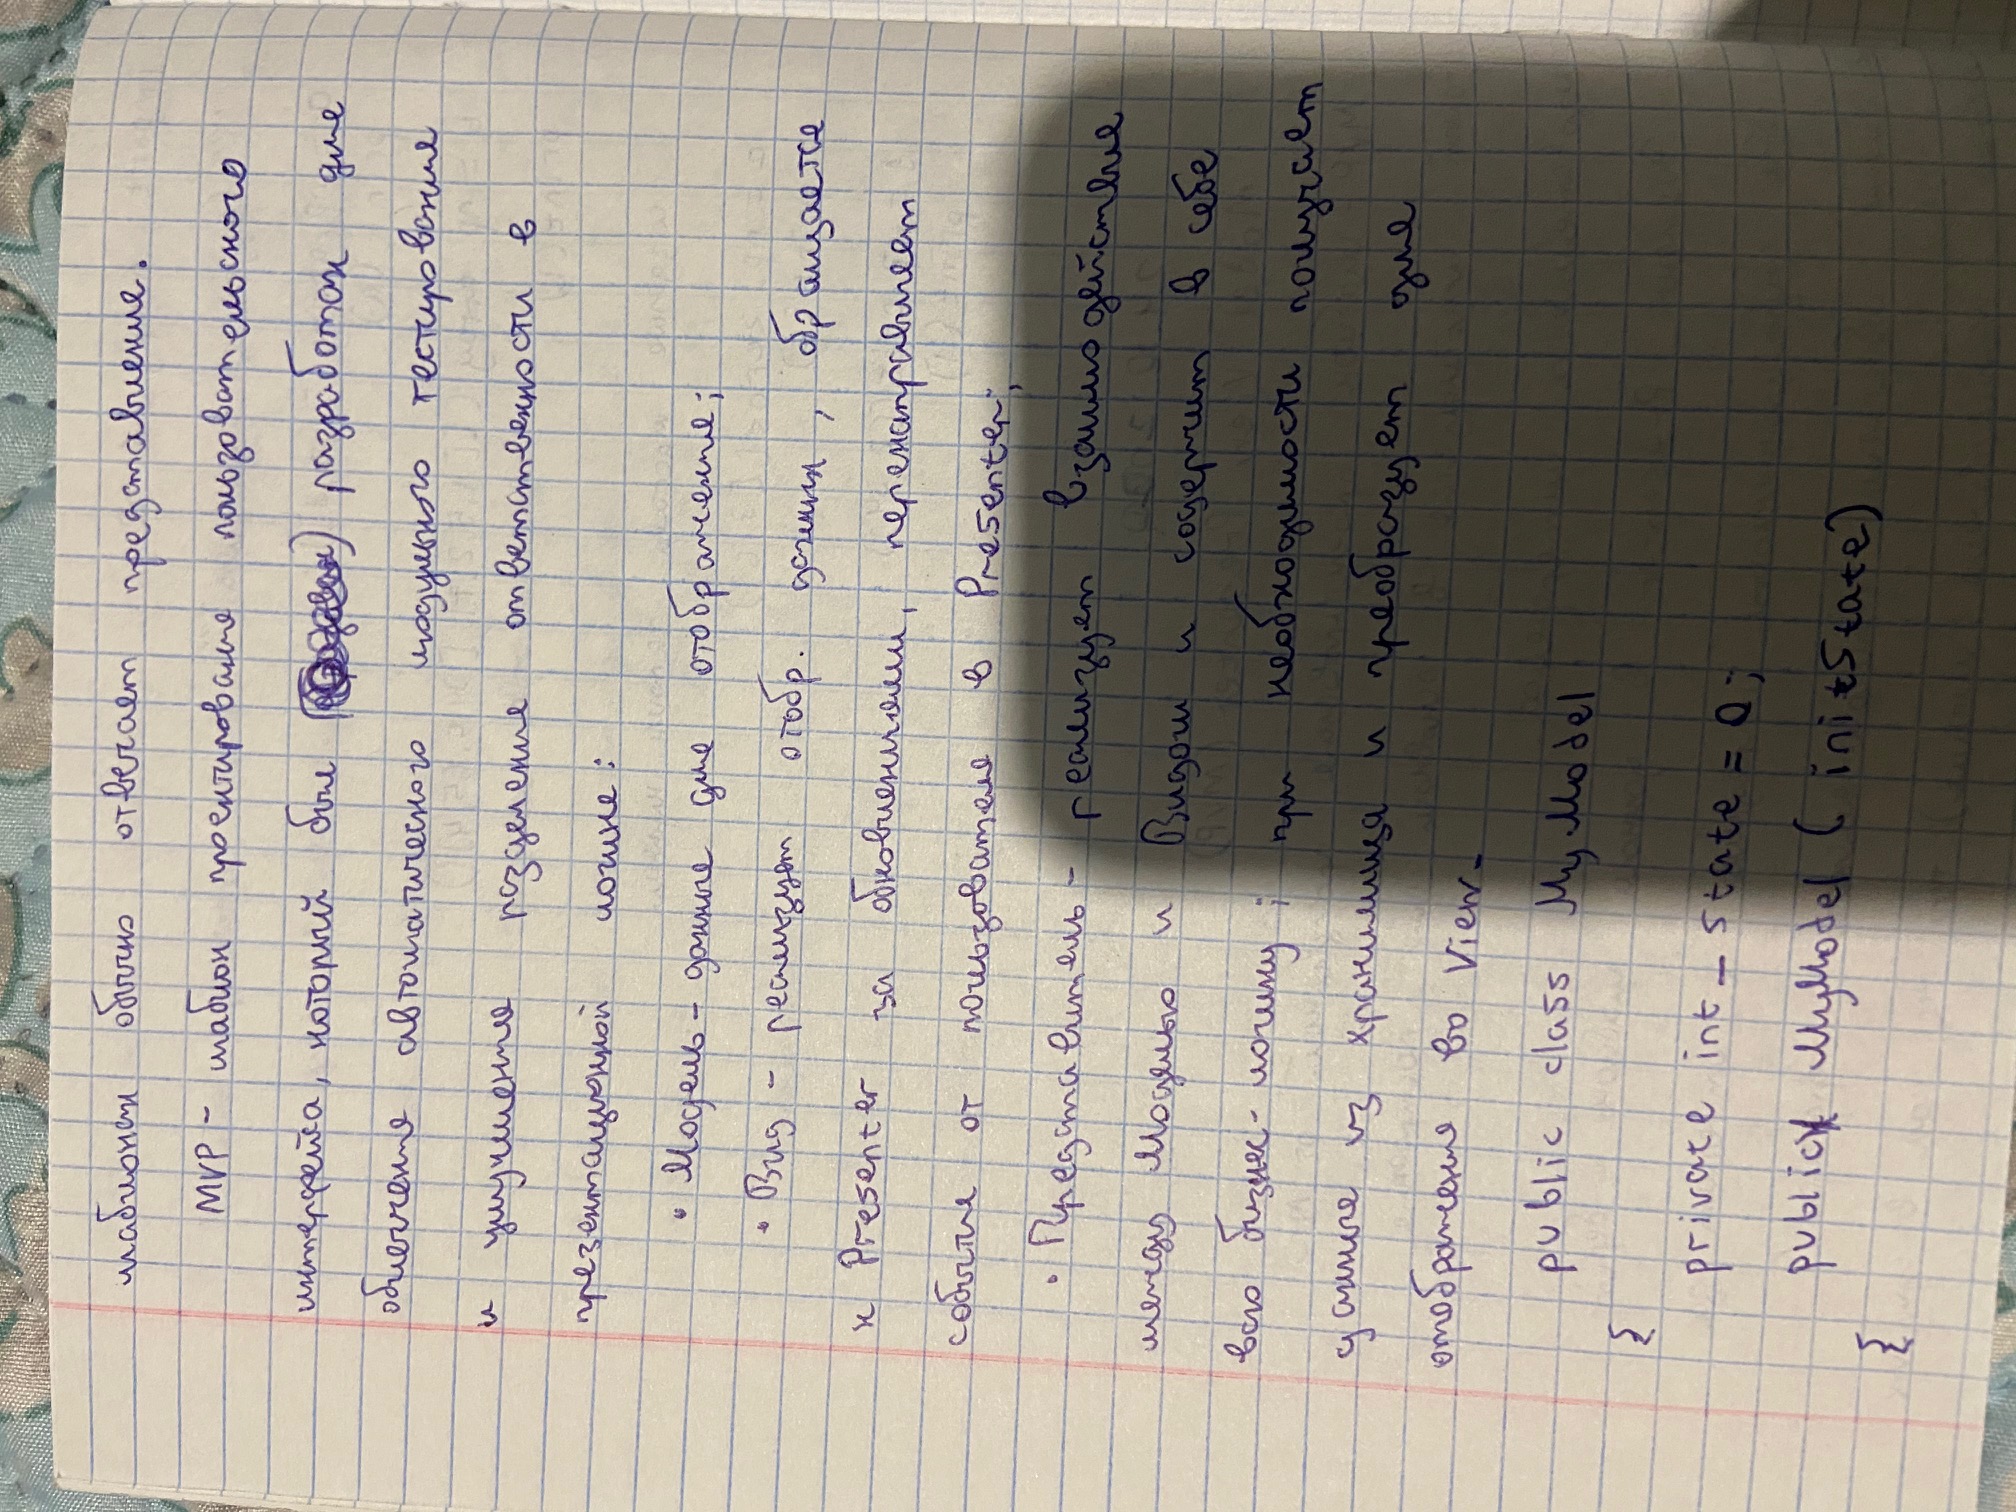 шаблонах обычно отвечает представление.
MVP - шаблон проектирования пользовательского
интерфейса, который был разработан для
облегчения автоматического модульного тестирования
и улучшения разделения ответственности в
презентационной логике:
• Модель - данные для отображения;
• Вид - реализует отобр. данных, обращается
к Presenter за обновлениями, перенаправляет
события от пользователя в Presenter;
• Представитель - реализует взаимодействие
между Моделью и Видом и содержит в себе
всю бизнес-логику; при необходимости получает
данные из хранилища и преобразует для
отображения во View.
public class MyModel
{
private int _state = 0;
public MyModel (initState)
{